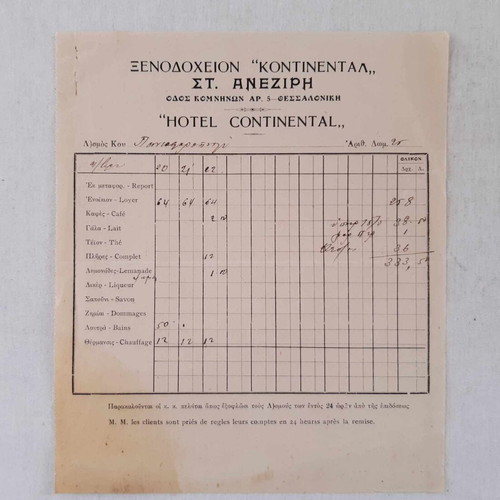 ΞΕΝΟΔΟΧΕΙΟΝ “ΚΟΝΤΙΝΕΝΤΑΛ„
ΣΤ. ΑΝΕΖΙΡΗ
ΟΔΟΣ ΚΟΜΝΗΝΩΝ ΑΡ. 5–ΘΕΣΣΑΛΟΝΙΚΗ
“HOTEL CONTINENTAL„
Λ)σμὸς Κου Ἀριθ. Δωμ. 25
ΟΛΙΚΟΝ
20 21 22 Δρχ. Λ.
Ἐκ μεταφορ. - Report
Ἐνοίκιον - Loyer 64 64 64 258
Καφές - Café 2 38 50
Γάλα - Lait 1
Τέϊον - Thé 36
Πλῆρες - Complet 12 333, 50
Λεμονάδες-Lemonade 1
Λικέρ - Liqueur
Σαποῦνι - Savon
Ζημίαι - Dommages
Λουτρά - Bains 50
Θέρμανσις - Chauffage 12 12 12
Παρακαλοῦνται οἱ κ. κ. πελάται ὅπως ἐξοφλῶσι τοὺς Λ)σμούς των ἐντὸς 24 ὡρῶν ἀπὸ τῆς ἐπιδόσεως
M. M. les clients sont priés de regles leurs comptes en 24 heures après la remise.